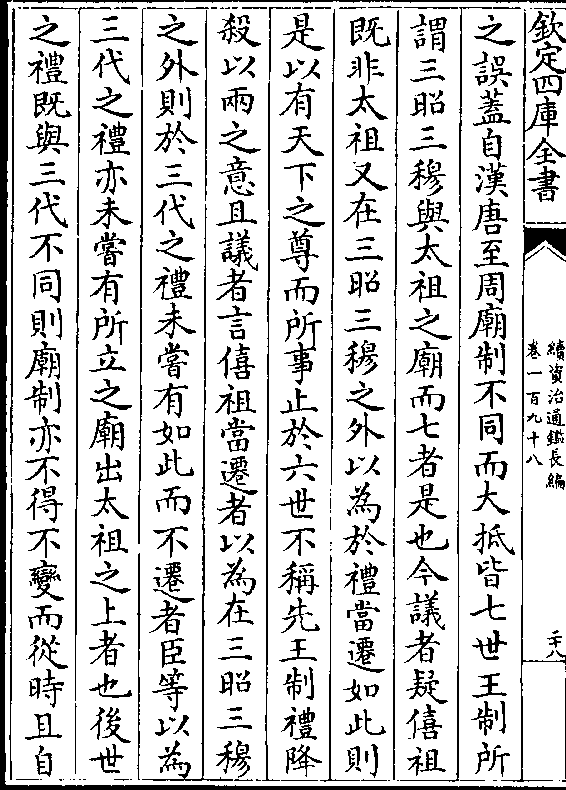 欽定四庫全書
續資治通鑑長編
卷一百九十八
二十八
之誤蓋自漢唐至周廟制不同而大抵皆七世王制所
謂三昭三穆與太祖之廟而七者是也今議者疑僖祖
既非太祖又在三昭三穆之外以為於禮當遷如此則
是以有天下之尊而所事止於六世不稱先王制禮降
殺以兩之意且議者言僖祖當遷者以為在三昭三穆
之外則於三代之禮未嘗有如此而不遷者臣等以為
三代之禮亦未嘗有所立之廟出太祖之上者也後世
之禮既與三代不同則廟制亦不得不變而從時且自